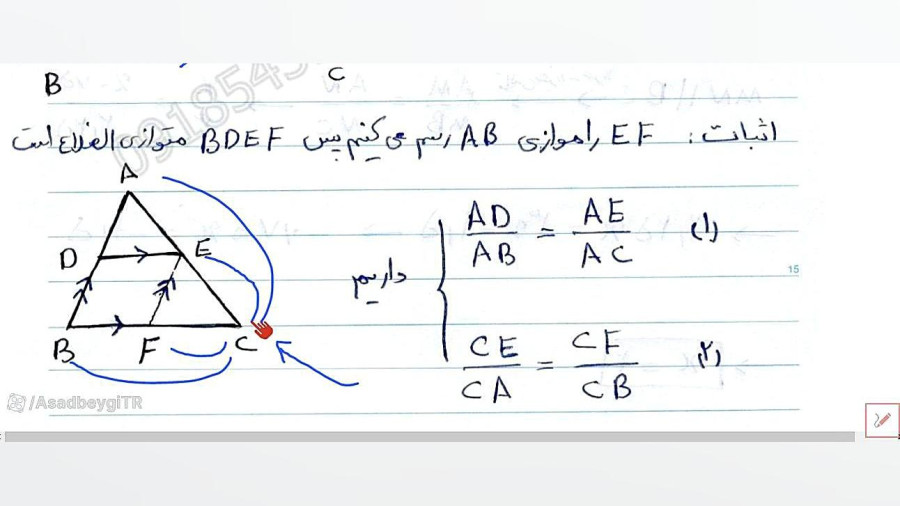 B C
اثبات: EF را موازی AB رسم می کنیم پس BDEF متوازی الاضلاع است
A
D E
B F C
داریم
AD/AB = AE/AC (۱)
CE/CA = CF/CB (۲)
15
/AsadbeygiTR